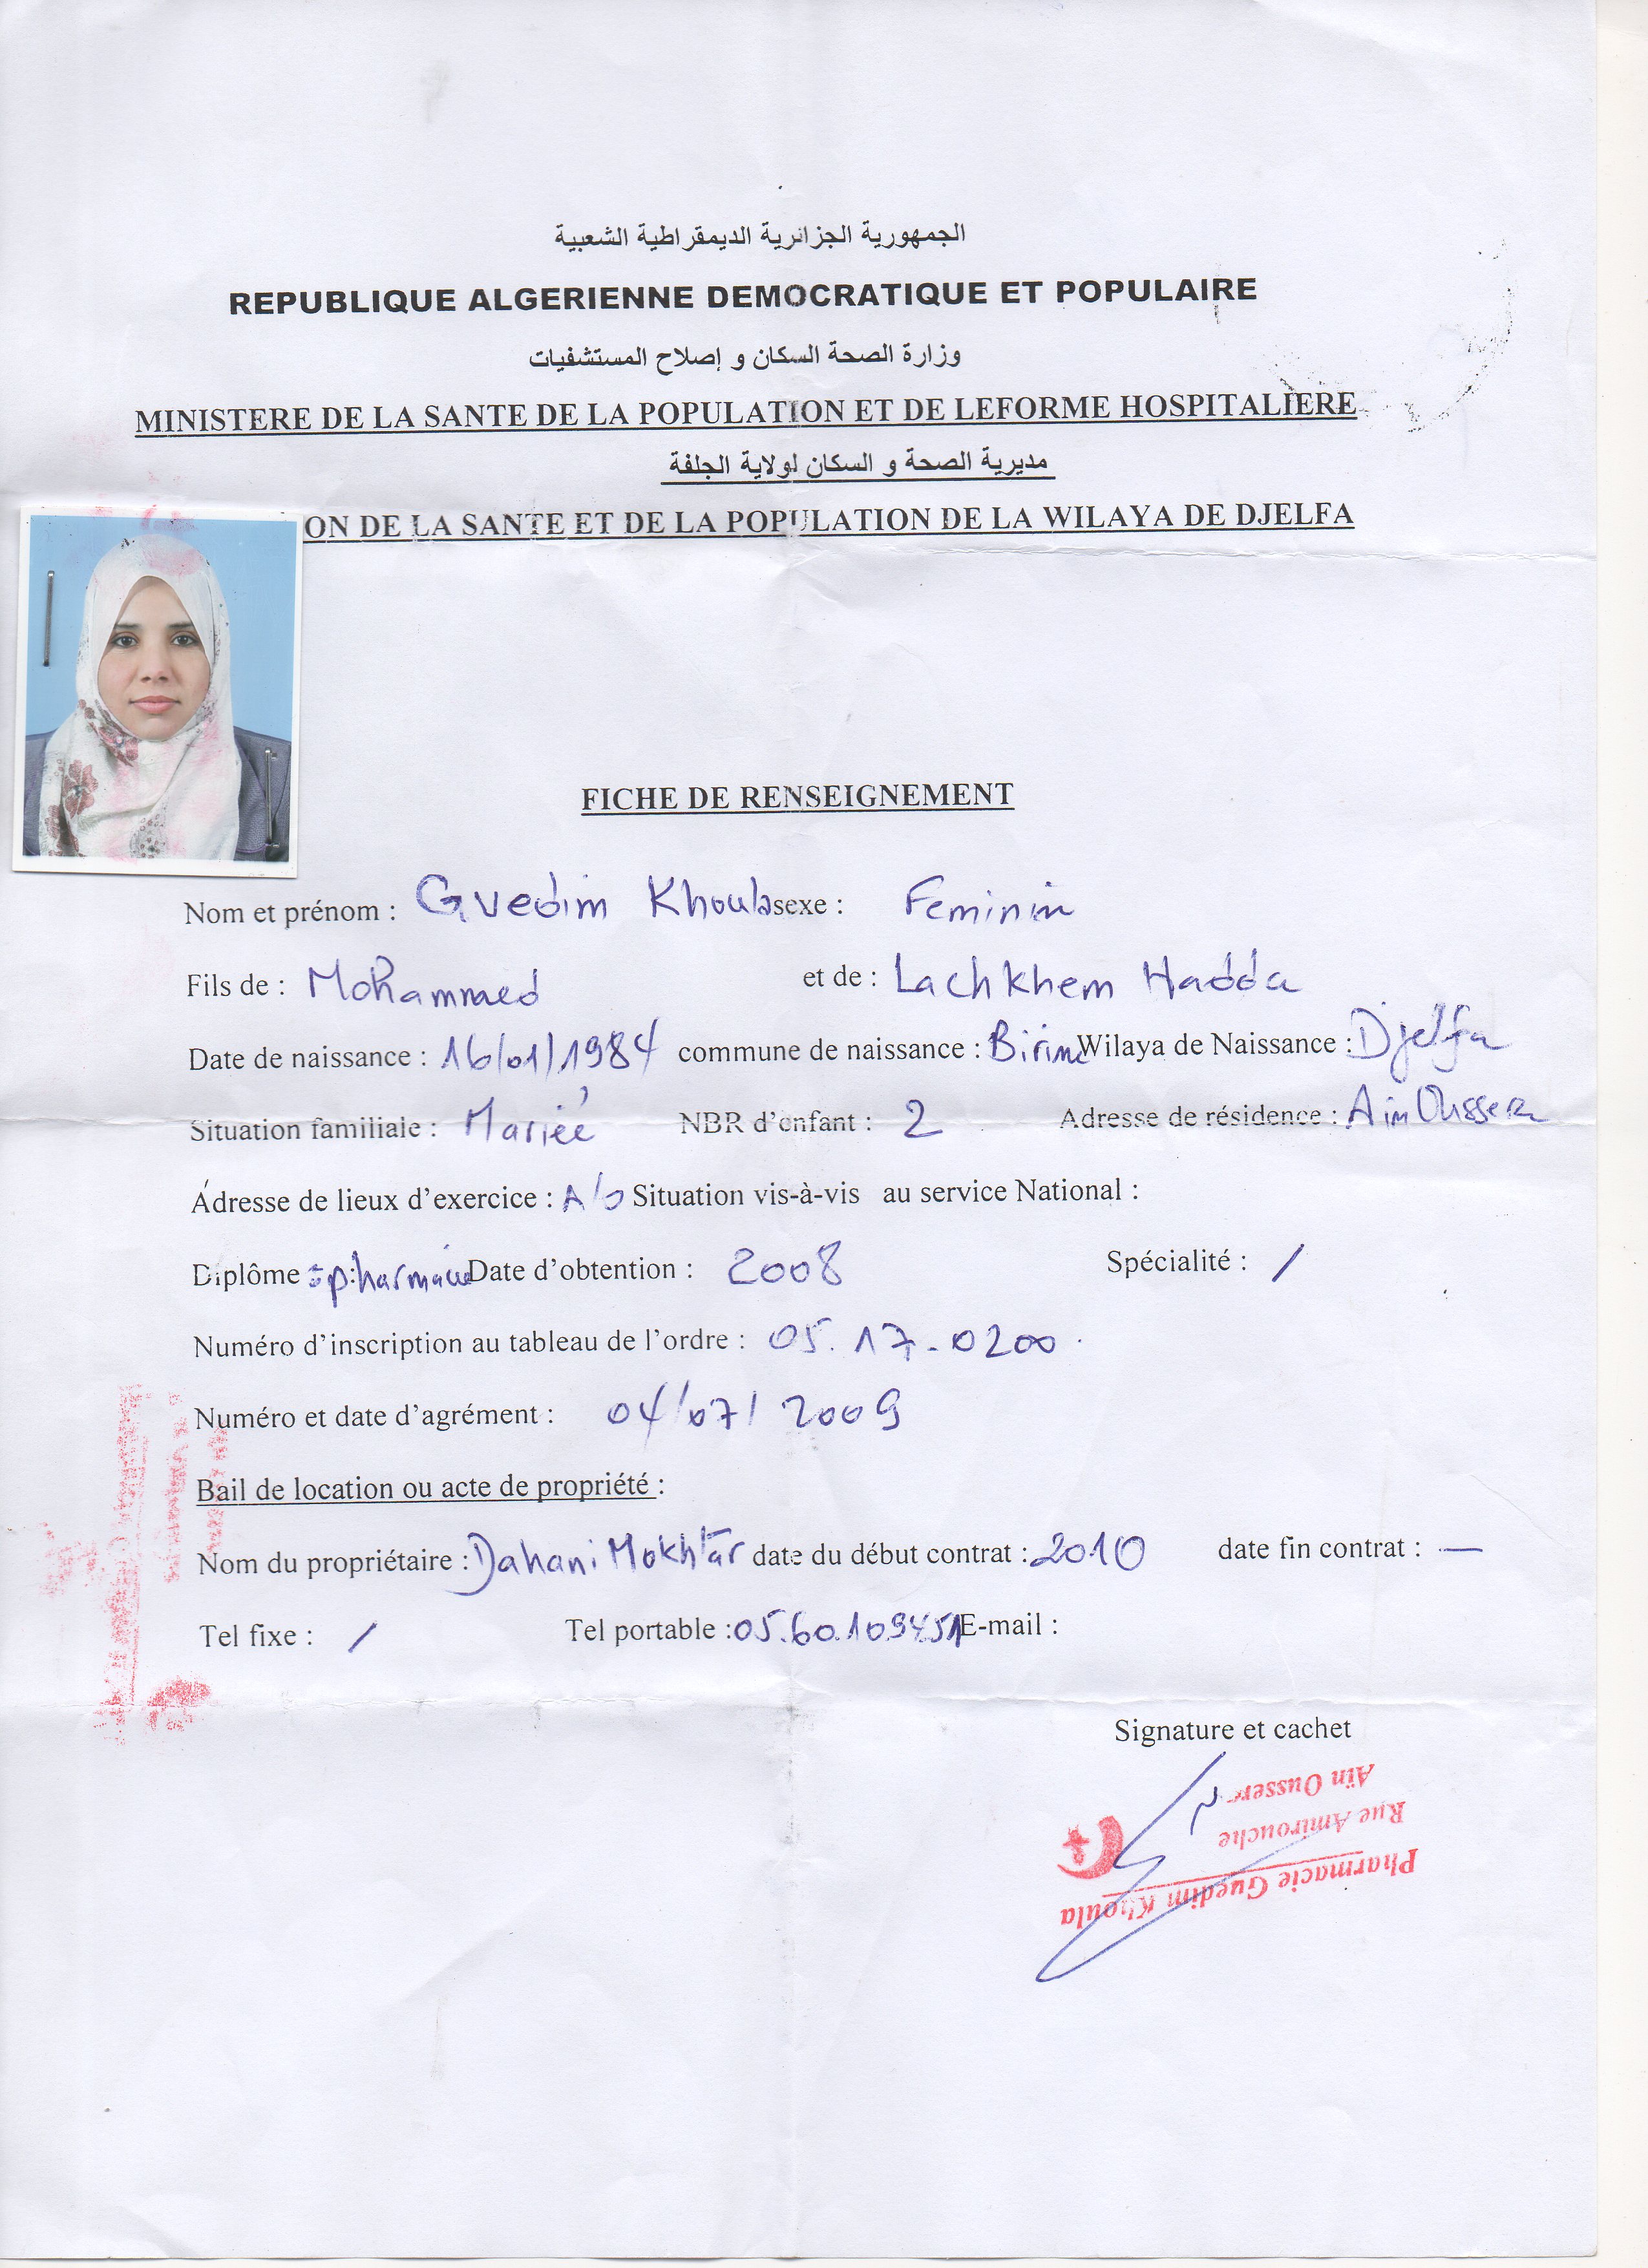 الجمهورية الجزائرية الديمقراطية الشعبية
REPUBLIQUE ALGERIENNE DEMOCRATIQUE ET POPULAIRE
وزارة الصحة السكان و إصلاح المستشفيات
MINISTERE DE LA SANTE DE LA POPULATION ET DE LEFORME HOSPITALIERE
مديرية الصحة و السكان لولاية الجلفة
ON DE LA SANTE ET DE LA POPULATION DE LA WILAYA DE DJELFA
FICHE DE RENSEIGNEMENT
Nom et prénom : Guedim Khoula sexe : Feminin
Fils de : Mohammed et de : Lachkhem Hadda
Date de naissance : 16/01/1984 commune de naissance : Birine Wilaya de Naissance : Djelfa
Situation familiale : Mariée NBR d'enfant : 2 Adresse de résidence : Ain Oussera
Adresse de lieux d'exercice : A/O Situation vis-à-vis au service National :
Diplôme : pharmacie Date d'obtention : 2008 Spécialité : /
Numéro d'inscription au tableau de l'ordre : 05.17-0200.
Numéro et date d'agrément : 04/07/2009
Bail de location ou acte de propriété :
Nom du propriétaire : Dahani Mokhtar date du début contrat : 2010 date fin contrat : —
Tel fixe : / Tel portable : 05.60.109451 E-mail :
Signature et cachet
Pharmacie Guedim Khoula
Rue Amirouche
Aïn Ousser